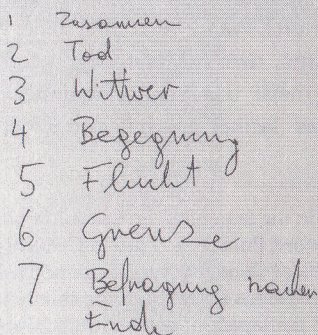 1 Zusammen
2 Tod
3 Wittwer
4 Begegnung
5 Flucht
6 Grenze
7 Befragung
Ende